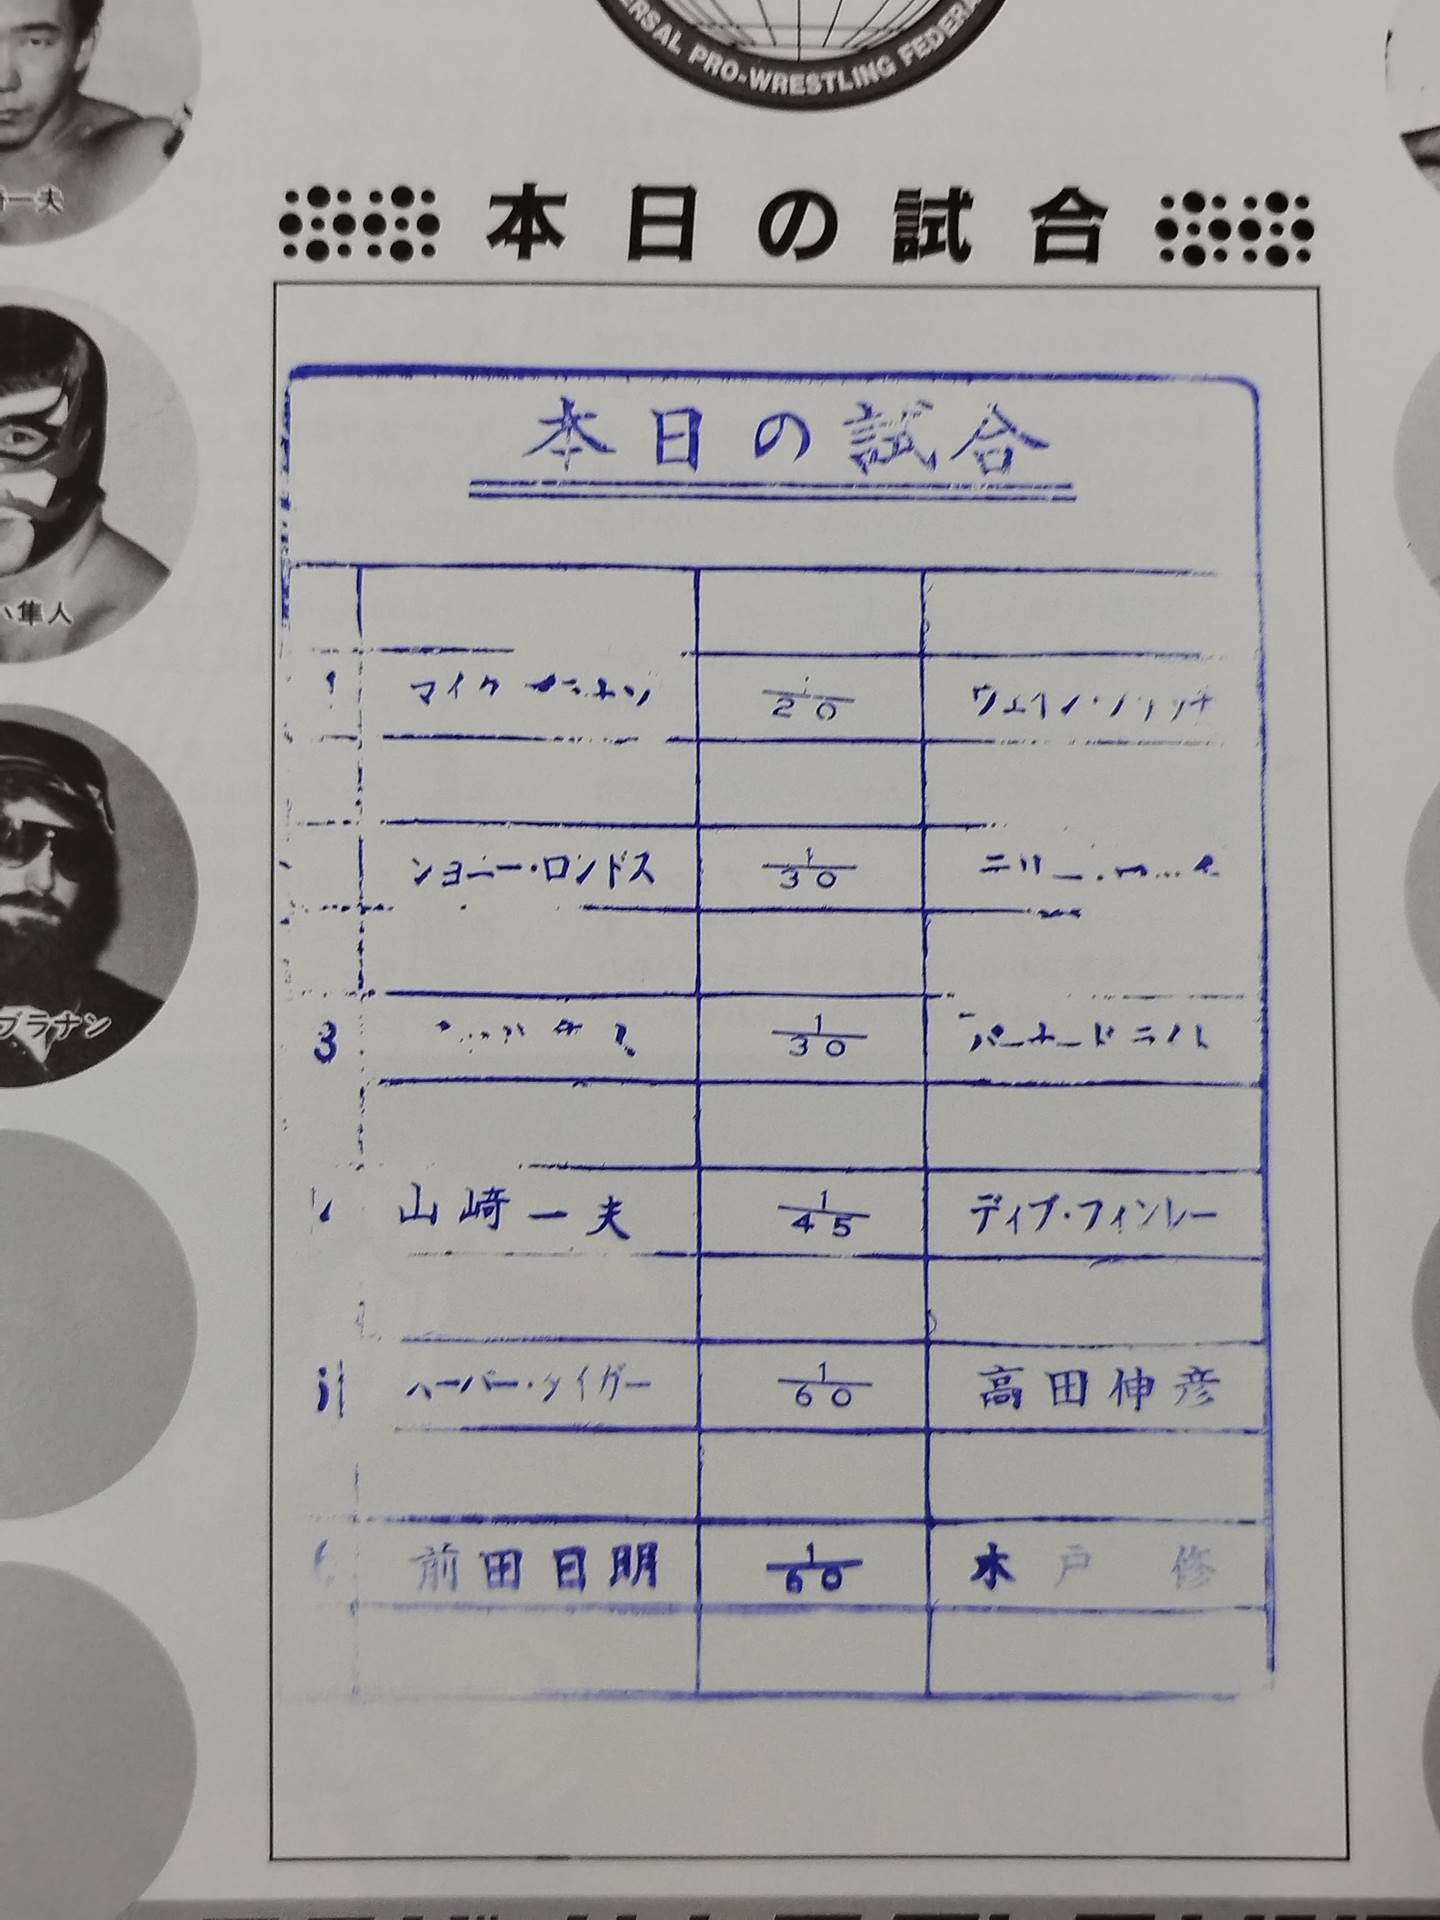 PRO-WRESTLING
一夫
本日の試合
隼人
ブラナン
本日の試合
1 マイク 1/20
ジョニー・ロンドス 1/30
3 1/30 バーナード ライト
山崎一夫 1/45 デイブ・フィンレー
スーパー・タイガー 1/60 高田伸彦
前田日明 1/60 木戸修